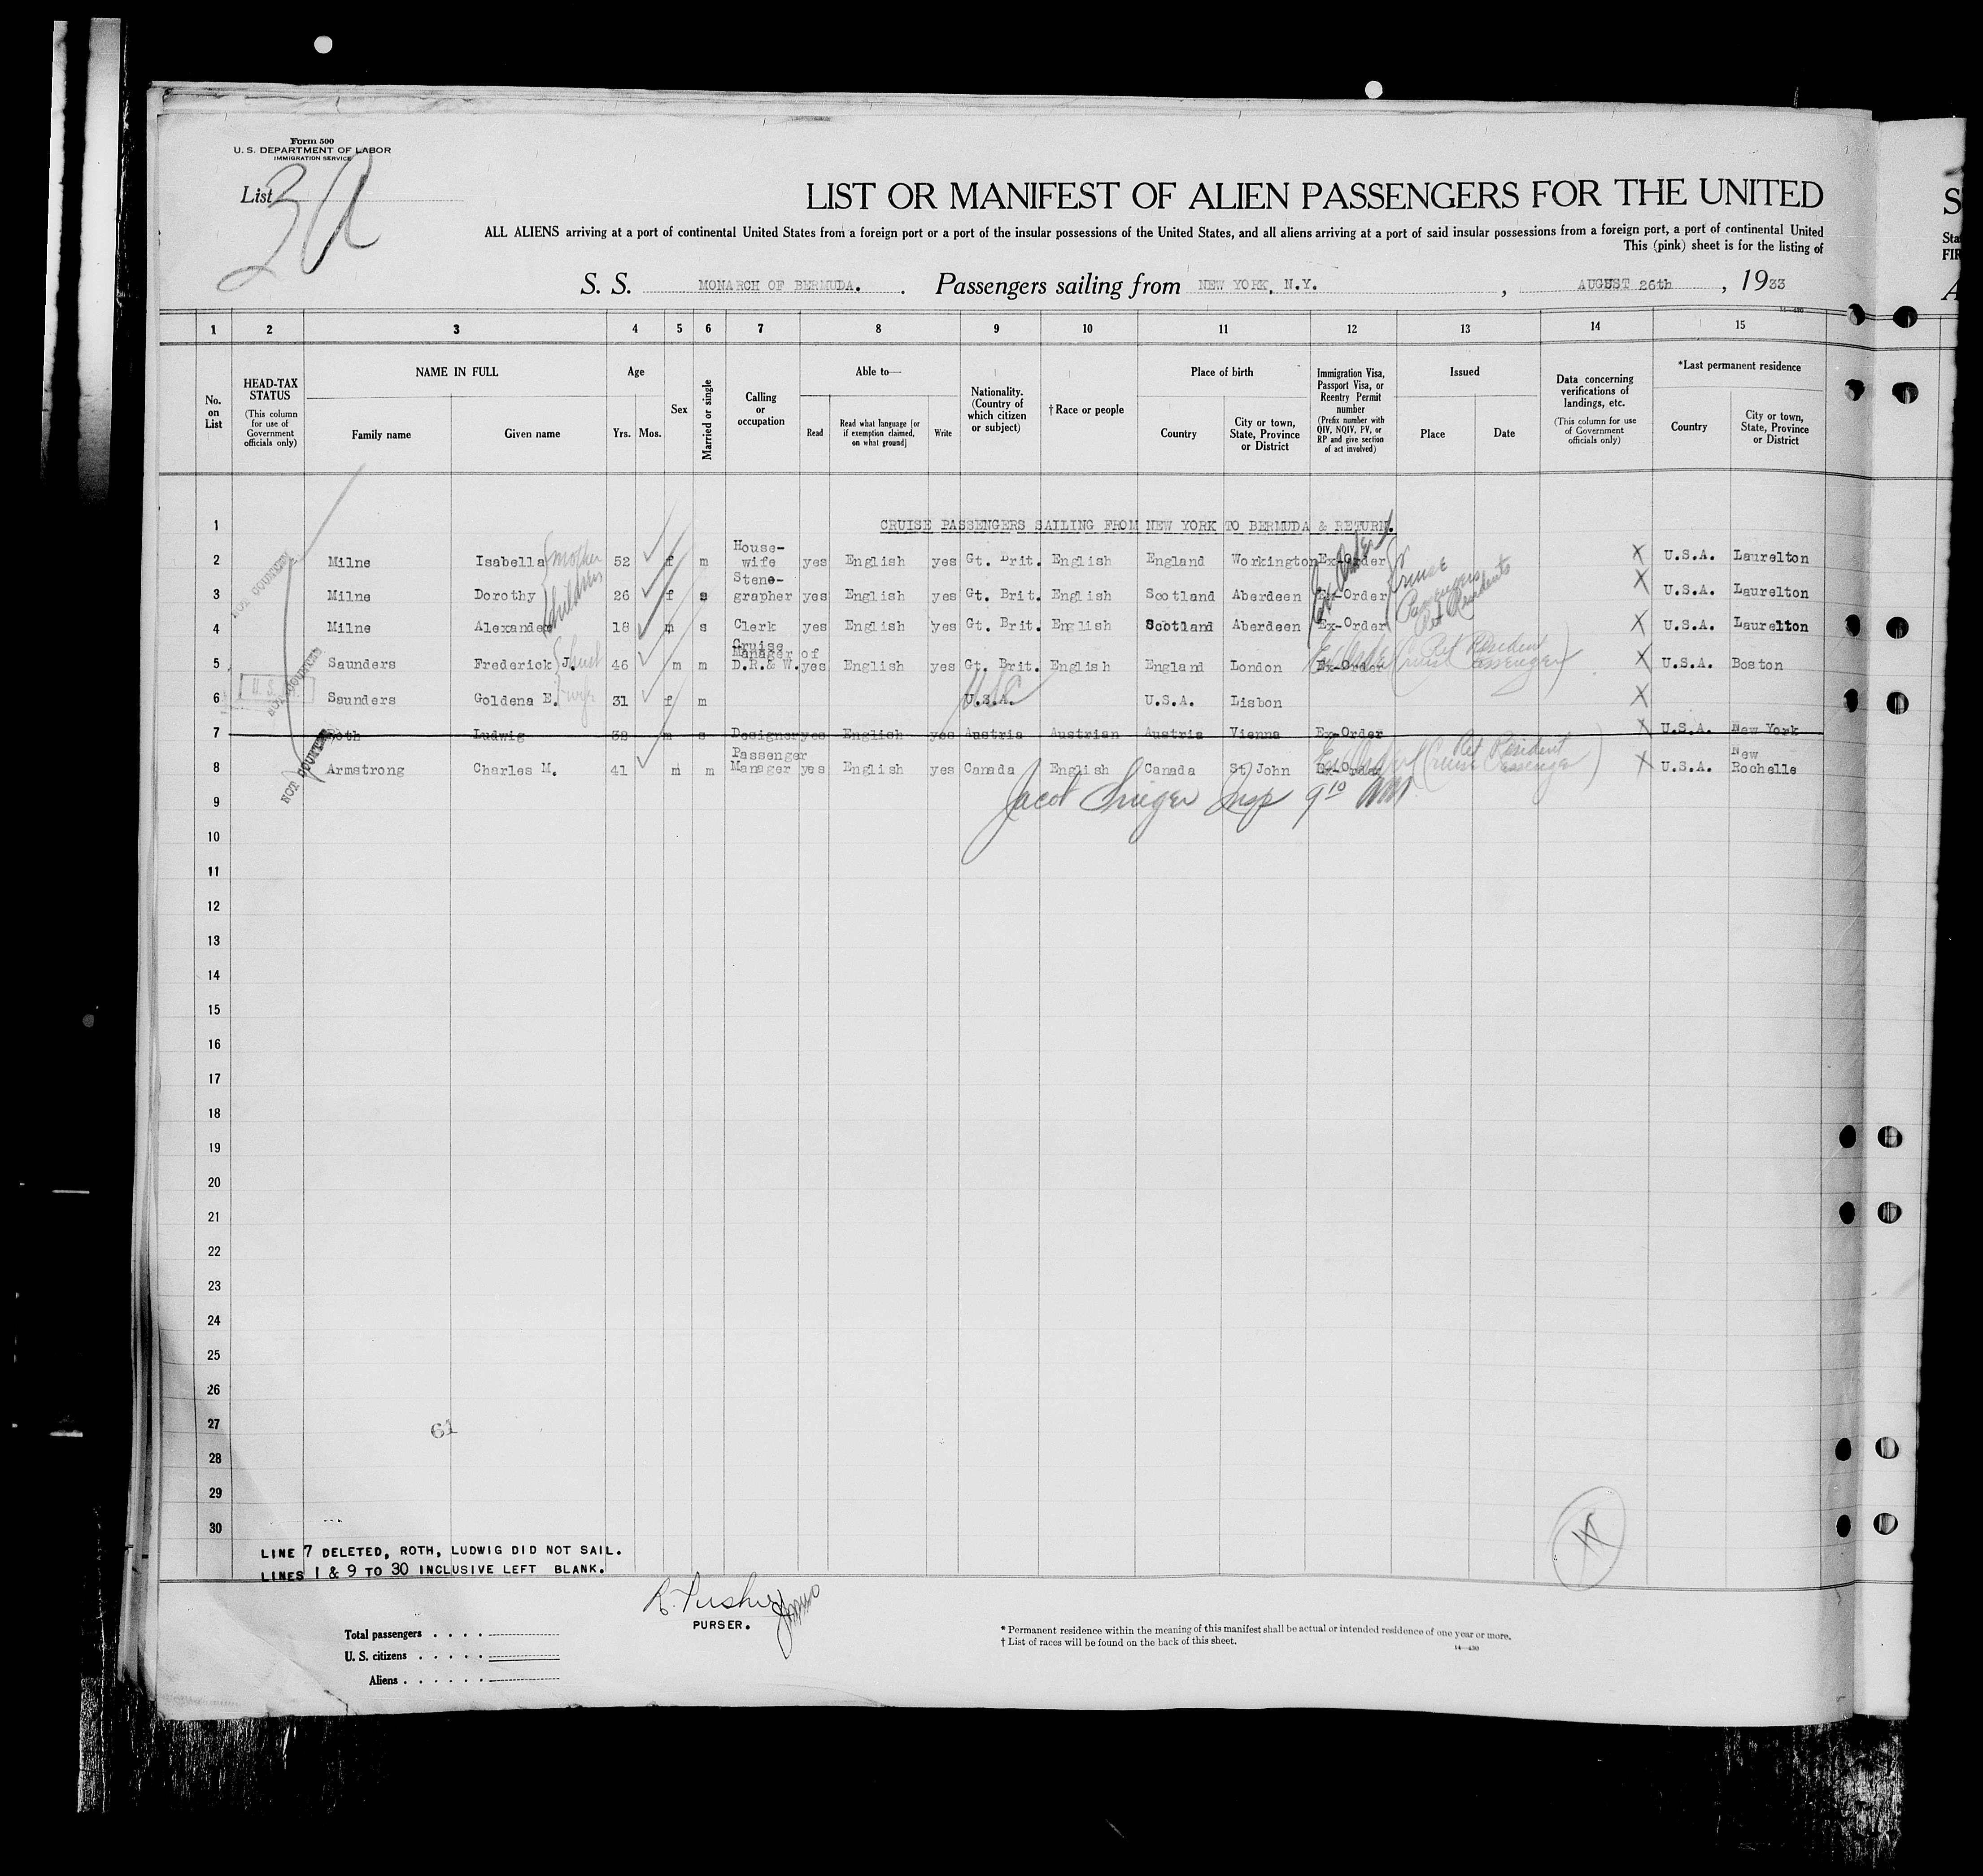 Form 500
U. S. DEPARTMENT OF LABOR
IMMIGRATION SERVICE
List 30
LIST OR MANIFEST OF ALIEN PASSENGERS FOR THE UNITED
ALL ALIENS arriving at a port of continental United States from a foreign port or a port of the insular possessions of the United States, and all aliens arriving at a port of said insular possessions from a foreign port, a port of continental United
This (pink) sheet is for the listing of
S. S. MONARCH OF BERMUDA. Passengers sailing from NEW YORK, N.Y. , AUGUST 26th , 1933
1 2 3 4 5 6 7 8 9 10 11 12 13 14 15
No. on List
HEAD-TAX STATUS
(This column for use of Government officials only)
NAME IN FULL
Family name
Given name
Age
Yrs. Mos.
Sex
Married or single
Calling or occupation
Able to—
Read
Read what language [or if exemption claimed, on what ground]
Write
Nationality. (Country of which citizen or subject)
† Race or people
Place of birth
Country
City or town, State, Province or District
Immigration Visa, Passport Visa, or Reentry Permit number
(Prefix number with QIV, NQIV, PV, or RP and give section of act involved)
Issued
Place
Date
Data concerning verifications of landings, etc.
(This column for use of Government officials only)
*Last permanent residence
Country
City or town, State, Province or District
1 CRUISE PASSENGERS SAILING FROM NEW YORK TO BERMUDA & RETURN.
2 Milne Isabella mother 52 f m House-wife yes English yes Gt. Brit. English England Workington Ex-Order X U.S.A. Laurelton
3 Milne Dorothy children 26 f s Steno-grapher yes English yes Gt. Brit. English Scotland Aberdeen Ex-Order X U.S.A. Laurelton
Cruise Passengers Ret Residents
4 Milne Alexander 18 m s Clerk yes English yes Gt. Brit. English Scotland Aberdeen Ex-Order X U.S.A. Laurelton
5 Saunders Frederick J. 46 m m Cruise Manager of D.R.& W. yes English yes Gt. Brit. English England London Ex-Order (Ret Resident Cruise Passenger) X U.S.A. Boston
6 Saunders Goldena E. wife 31 f m U.S.A. U.S.A. Lisbon X
7 Roth Ludwig 32 m s Designer yes English yes Austria Austrian Austria Vienna Ex-Order X U.S.A. New York
8 Armstrong Charles M. 41 m m Passenger Manager yes English yes Canada English Canada St John Ex-Order (Ret Resident Cruise Passenger) X U.S.A. New Rochelle
NOT COUNTED
NOT COUNTED
NOT COUNTED
9
10
11
12
13
14
15
16
17
18
19
20
21
22
23
24
25
26
27
61
28
29
30
LINE 7 DELETED, ROTH, LUDWIG DID NOT SAIL.
LINES 1 & 9 TO 30 INCLUSIVE LEFT BLANK.
PURSER.
Total passengers
U. S. citizens
Aliens
* Permanent residence within the meaning of this manifest shall be actual or intended residence of one year or more.
† List of races will be found on the back of this sheet.
14—430